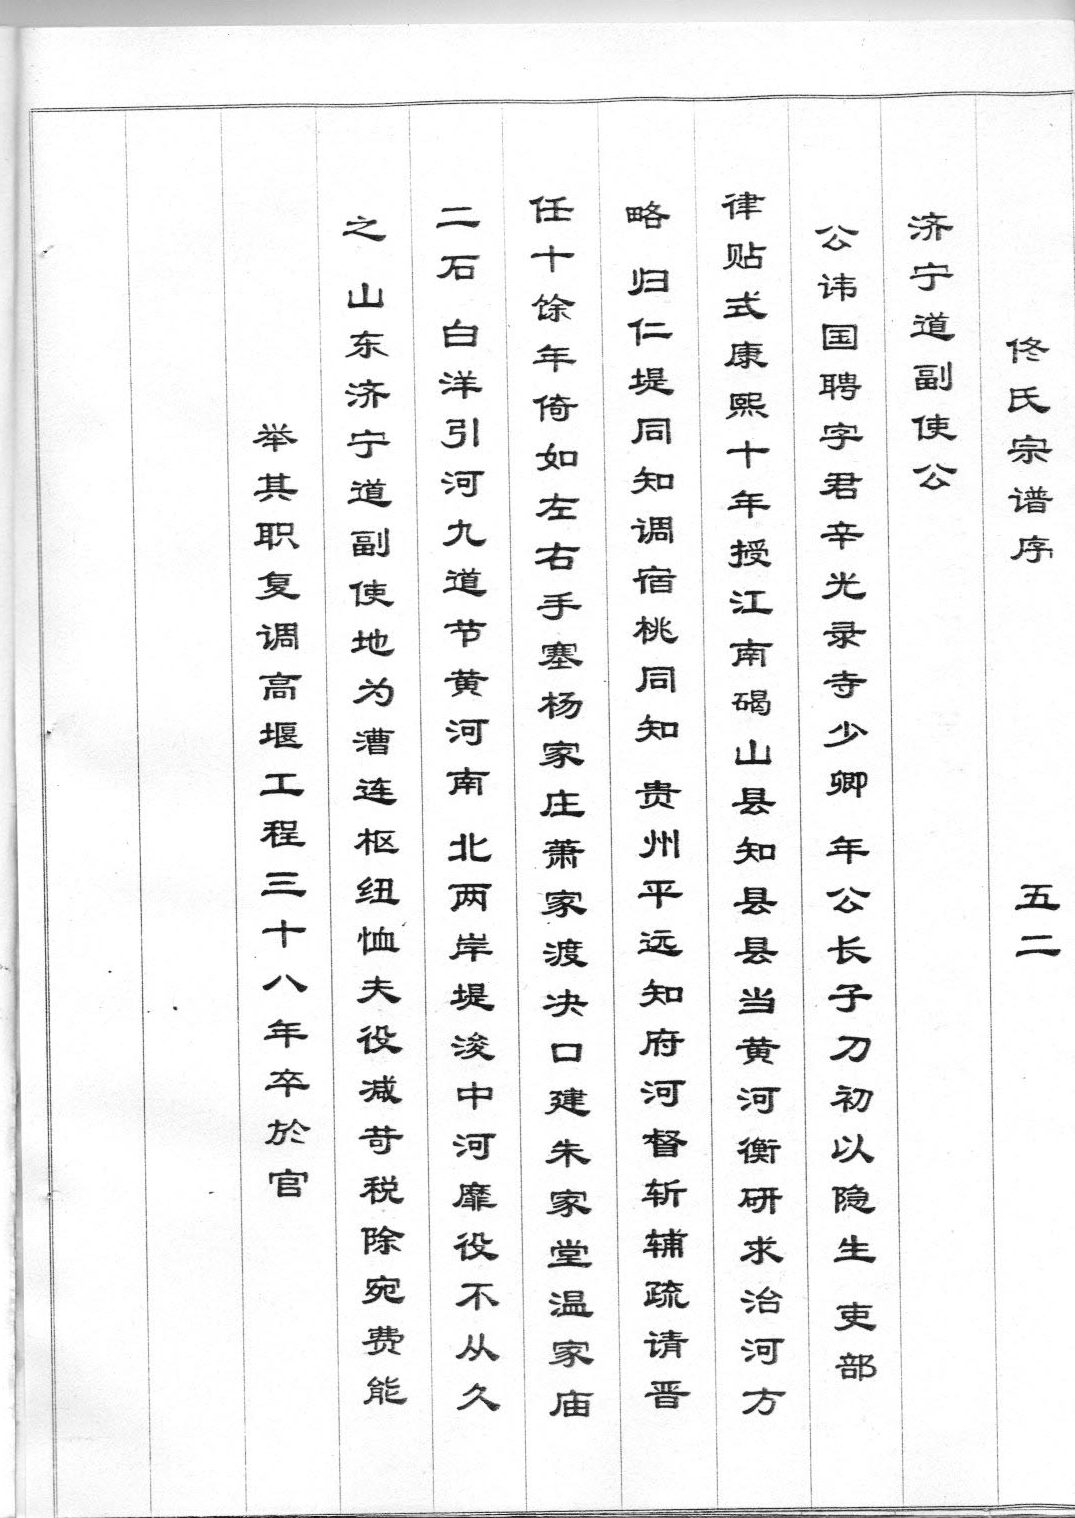 佟氏宗谱序 五二
济宁道副使公
公讳国聘字君辛光录寺少卿 年公长子刀初以隐生 吏部
律贴式康熙十年授江南碭山县知县县当黄河衡研求治河方
略 归仁堤同知调宿桃同知 贵州平远知府河督斩辅疏请晋
任十馀年倚如左右手塞杨家庄萧家渡决口建朱家堂温家庙
二石 白洋引河九道节黄河南 北两岸堤浚中河靡役不从久
之 山东济宁道副使地为漕连枢纽恤夫役减苛税除宛费能
举其职复调高堰工程三十八年卒於官